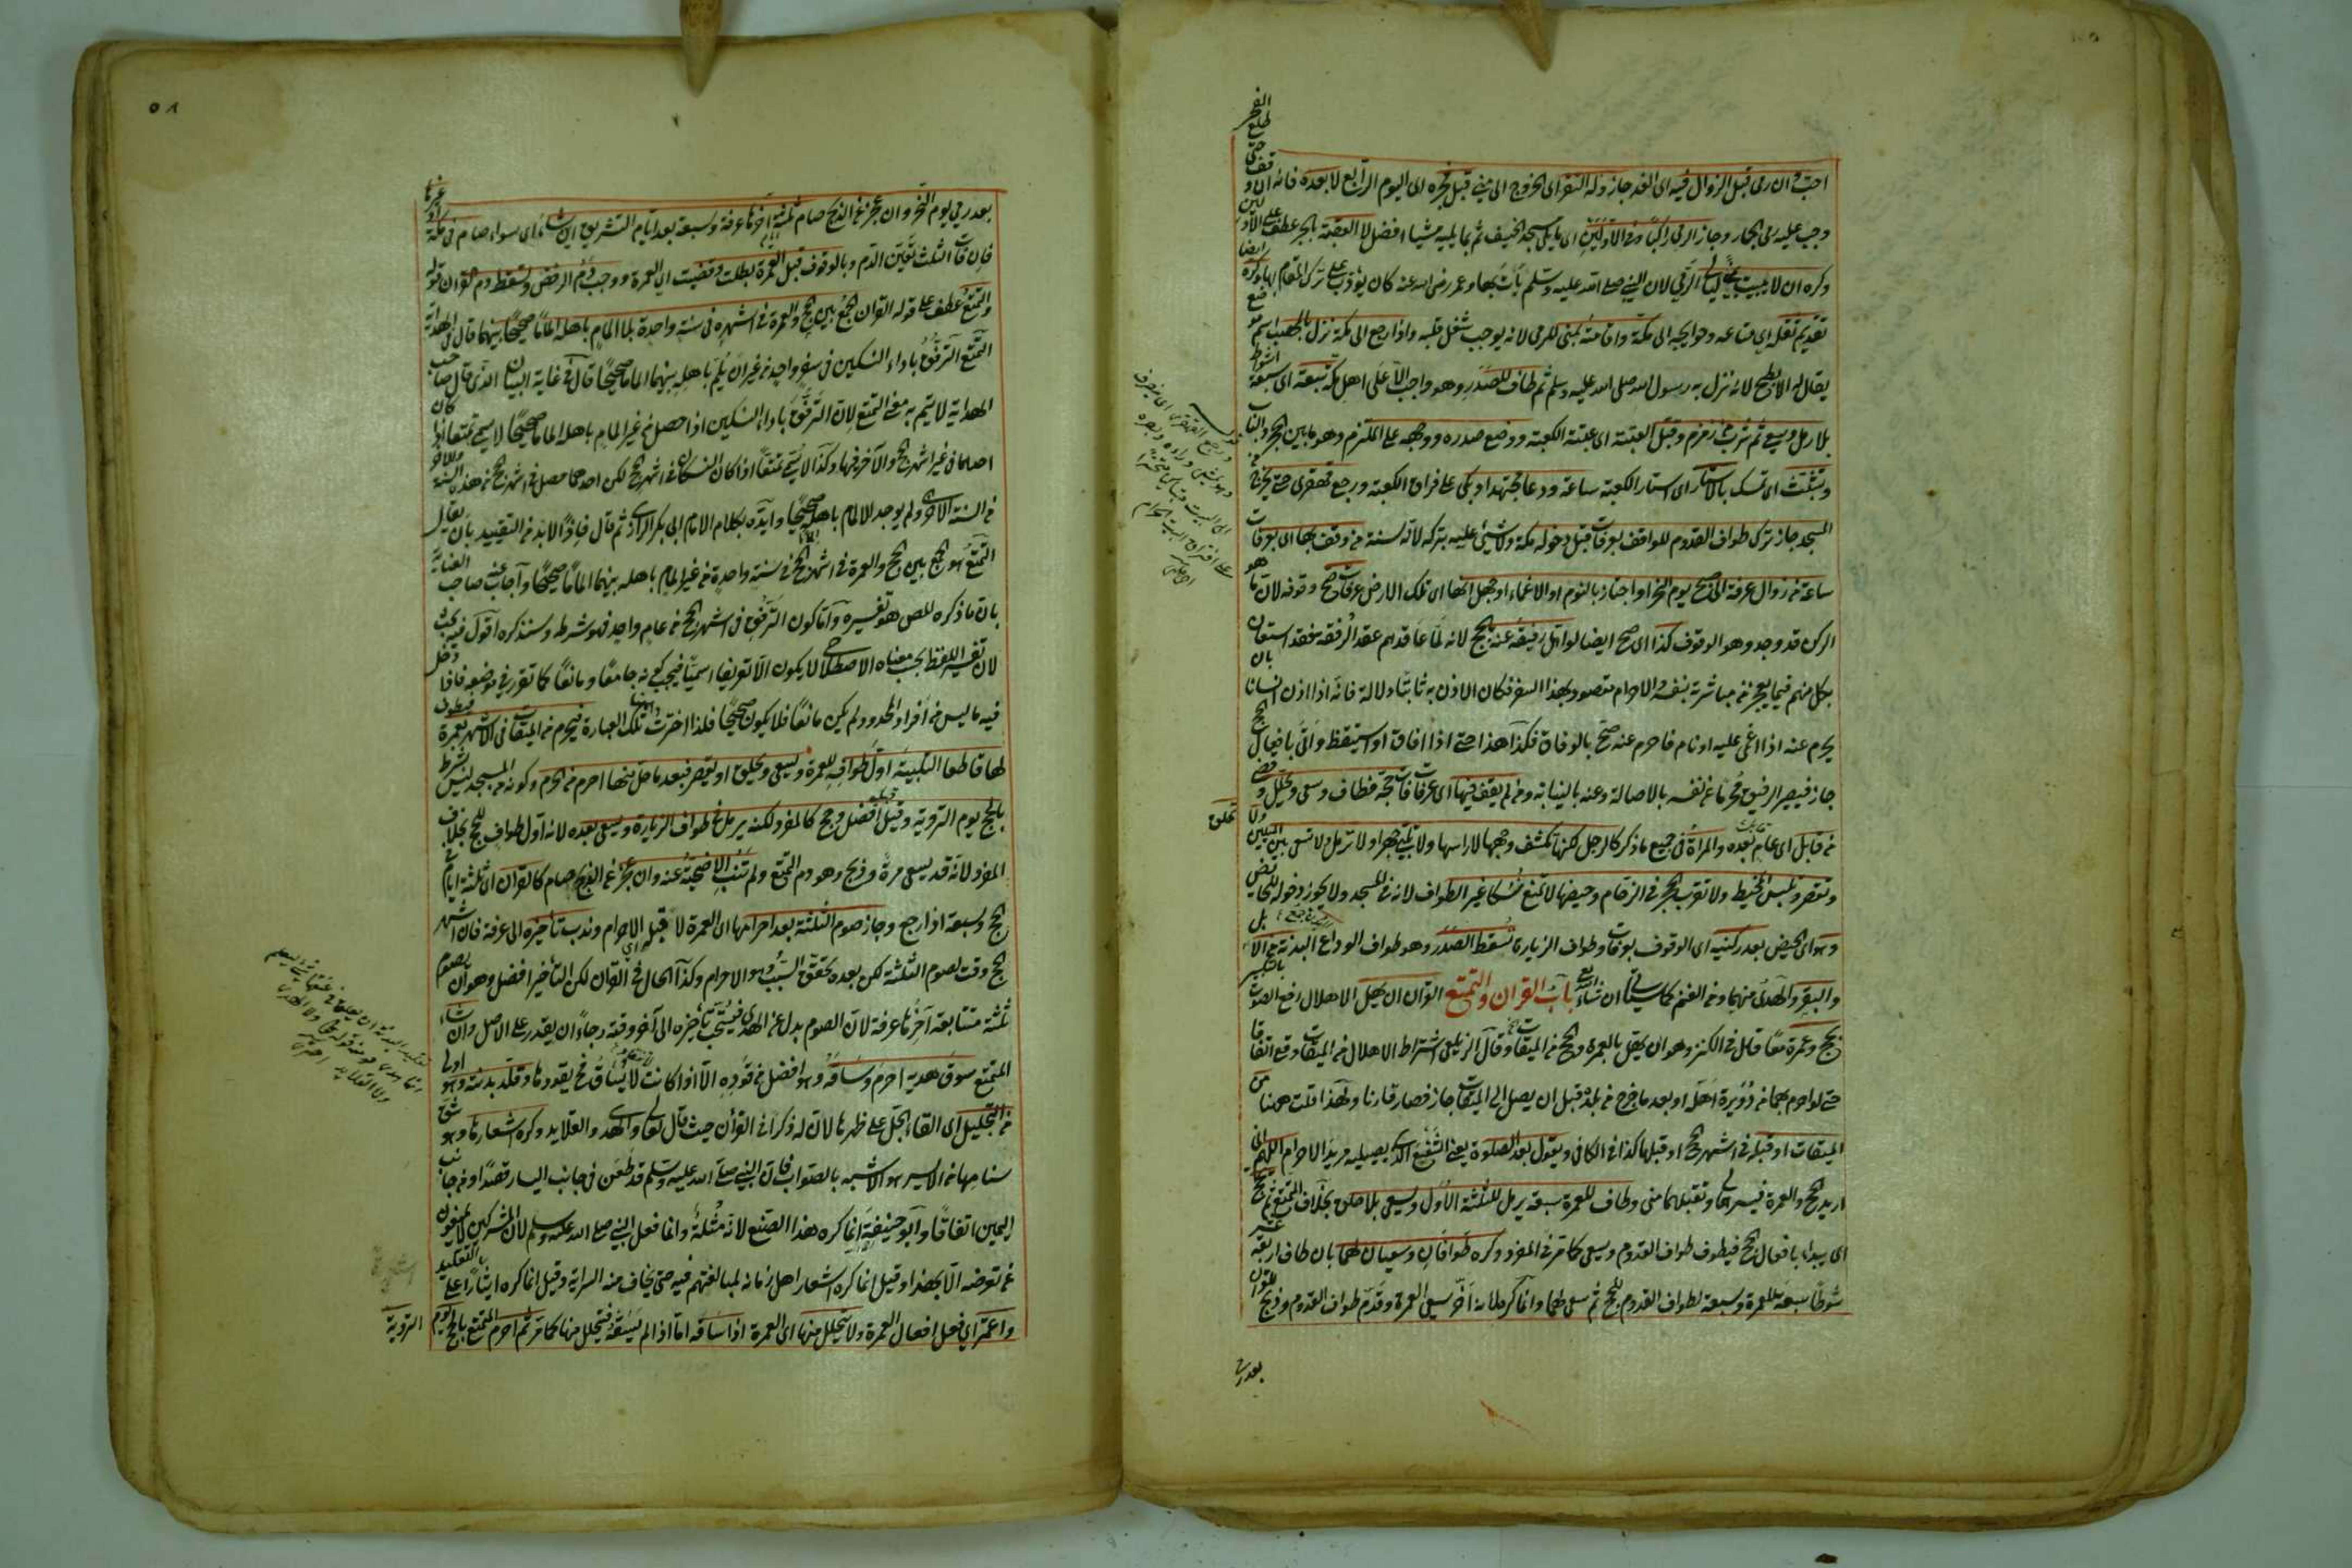 احب وان رمى قبل الزوال فيه اى الغد جاز وله النفر اى الخروج الى منى قبل فجره اى اليوم الرابع لا بعده فانه ان وقف حتى طلع الفجر
وجب عليه رمى الجمار وجاز الرمى راكبا وفى الاوليين اى ما يلى مسجد الخيف ثم ما يليه مشيا افضل لا العقبة بالجر عطف على الاوليين
وكره ان لا يبيت بمنى ليالى الرمى لان النبى صلى الله عليه وسلم بات بها وعمر رضى الله عنه كان يؤدب على ترك المقام بها وكره ايضا
تقديم ثقله اى متاعه وحوايجه الى مكة واقامته بمنى للرمى لانه يوجب شغل قلبه واذا رجع الى مكة نزل بالمحصب اسم موضع
يقال له الابطح لانه نزل به رسول الله صلى الله عليه وسلم ثم طاف للصدر وهو واجب الا على اهل مكة سبعة اى سبعة اشواط
بلا رمل وسعى ثم شرب من زمزم وقبل العتبة اى عتبة الكعبة ووضع صدره ووجهه على الملتزم وهو ما بين الحجر والباب
وتشبث اى تمسك بالاستار اى استار الكعبة ساعة ودعا مجتهدا وبكى على فراق الكعبة ورجع قهقرى حتى يخرج من
المسجد جاز ترك طواف القدوم للواقف بعرفات قبل دخوله مكة ولا شىء عليه بتركه لانه سنة من وقف بها اى بعرفات
ساعة من زوال عرفة الى صبح يوم النحر او اجتاز بالنوم او الاغماء او جهل انها اى تلك الارض عرفات صح وقوفه لان ما هو
الركن قد وجد وهو الوقوف كذا اى صح ايضا لو اهل رفيقه عنه بحج لانه لما عاقدهم عقد الرفقة فقد استعان
بكل منهم فيما يعجز عن مباشرته بنفسه والاحرام مقصود بهذا السفر فكان الاذن به ثابتا دلالة فانه اذا اذن انسانا بان
يحرم عنه اذا اغمى عليه او نام فاحرم عنه صح بالوفاق فكذا هذا حتى اذا افاق او استيقظ واتى بافعال الحج
جاز فيصير الرفيق محرما عن نفسه بالاصالة وعنه بالنيابة ومن لم يقف فيها اى عرفات فات حجه فطاف وسعى وتحلل وقضى
من قابل اى عام بعده والمراة فى جميع ما ذكر كالرجل لكنها تكشف وجهها لا راسها ولا تلبى جهرا ولا ترمل ولا تسعى بين الميلين ولا تحلق
وتقصر وتلبس المخيط ولا تقرب الحجر فى الزحام وحيضها لا تمنع نسكا غير الطواف لانه فى المسجد ولا يجوز دخوله للحايض
وهو اى الحيض بعد ركنيه اى الوقوف بعرفات وطواف الزيارة تسقط الصدر وهو طواف الوداع البدنة من الابل
والبقر والهدى منهما ومن الغنم كما سياتى ان شاء الله تعالى باب القران والتمتع القران ان يهل الاهلال رفع الصوت بالتكبير
بحج وعمرة معا قال فى الكنز وهو ان يهل بالعمرة والحج من الميقات وقال الزيلعى اشتراط الاهلال من الميقات وقع اتفاقا
حتى لو احرم بهما من دويرة اهله او بعد ما خرج من بلده قبل ان يصل الى الميقات جاز فصار قارنا ولهذا قلت ههنا من
الميقات او قبله فى اشهر الحج او قبلها كذا فى الكافى ويقول بعد الصلوة يعنى الشفع الذى يصليه مريد الاحرام اللهم انى
اريد الحج والعمرة فيسرهما لى وتقبلهما منى وطاف للعمرة سبعة يرمل للثلثة الاول ويسعى بلا حلق بخلاف المتمتع ثم يحج
اى يبداء بافعال الحج فيطوف طواف القدوم ويسعى كما مر فى المفرد وكره طوافان وسعيان لهما بان طاف اربعة عشر
شوطا سبعة للعمرة وسبعة لطواف القدوم للحج ثم سعى لهما وانما كره لانه اخر سعى العمرة وقدم طواف القدوم وذبح للقران
بعد رمى
٥٨
بعد رمى يوم النحر وان عجز عن الذبح صام ثلثة ايام آخرها عرفة وسبعة بعد ايام التشريق اين شاء اى سواء صام فى مكة او غيرها
فان فات الثلث تعين الدم وبالوقوف قبل العمرة بطلت وقضيت اى العمرة ووجب دم الرفض وسقط دم القران قوله
والتمتع عطف على قوله القران الجمع بين الحج والعمرة فى اشهره فى سنة واحدة بلا المام باهله الماما صحيحا بينهما قال فى الهداية
التمتع الترفق باداء النسكين فى سفر واحد من غير ان يلم باهله بينهما الماما صحيحا قال فى غاية البيان الذى قال صاحب
الهداية لا يتم به معنى التمتع لان الترفق باداء النسكين اذا حصل من غير المام باهله الماما صحيحا لا يسمى تمتعا اذا كان
احدهما فى غير اشهر الحج والآخر فيها وكذا لا يسمى تمتعا اذا كان النسكان فى اشهر الحج لكن احدهما حصل فى اشهر الحج من هذه السنة والآخر
من السنة الاخرى ولم يوجد الالمام باهله صحيحا وايده بكلام الامام ابى بكر الرازى ثم قال فاذا لا بد من التقييد بان يقال
التمتع هو الجمع بين الحج والعمرة فى اشهر الحج فى سنة واحدة من غير المام باهله بينهما الماما صحيحا واجاب عنه صاحب العناية
بان ما ذكره المص هو تفسيره واما كون الترفق فى اشهر الحج من عام واحد فهو شرطه وسنذكره اقول فيه بحث
لان تفسير اللفظ بحسب معناه الاصطلاحى لا يكون الا تعريفا اسميا فيجب كونه جامعا ومانعا كما تقرر فى موضعه فاذا دخل
فيه ما ليس من افراد المحدود لم يكن مانعا فلا يكون صحيحا فلذا اخترت تلك العبارة فيحرم من الميقات فى الاشهر بعمرة فيطوف
لها قاطعا التلبية اول طوافه للعمرة ويسعى ويحلق او يقصر فبعد ما حل منها احرم من الحرم وكونه من المسجد ليس بشرط
بالحج يوم التروية وقبله افضل وحج كالمفرد لكنه يرمل فى طواف الزيارة ويسعى بعده لانه اول طواف للحج بخلاف
المفرد لانه قد يسعى مرة وذبح وهو دم التمتع ولم تنب الاضحية عنه وان عجز عن الذبح صام كالقران اى ثلثة ايام فى
الحج وسبعة اذا رجع وجاز صوم الثلثة بعد احرامها اى العمرة لا قبله اى الاحرام وندب تاخيره الى عرفة فان اشهر
الحج وقت لصوم الثلثة لكن بعد تحقق السبب وهو الاحرام وكذا الحال فى القران لكن التاخير افضل وهو ان يصوم
ثلثة متتابعة آخرها عرفة لان الصوم بدل عن الهدى فيستحب تاخيره الى آخر وقته رجاء ان يقدر على الاصل وان شاء
المتمتع سوق هديه احرم وساقه وهو افضل من قوده الا اذا كانت لا تنساق فح يقودها وقلد بدنته وهو اولى
من التجليل اى القاء الجل على ظهرها لان له ذكرا فى القرآن حيث قال تعالى والهدى والقلايد وكره اشعارها وهو شق
سنامها من الايسر وهو الاشبه بالصواب فان النبى صلى الله عليه وسلم قد طعن فى جانب اليسار قصدا ومن جانب
اليمين اتفاقا وابو حنيفة انما كره هذا الصنع لانه مثلة وانما فعل النبى صلى الله عليه وسلم لان المشركين لا يمتنعون
عن تعرضه الا بهذا وقيل انما كره اشعار اهل زمانه لمبالغتهم فيه حتى يخاف منه السراية وقيل انما كره ايثارا على التقليد
واعتمر اى فعل افعال العمرة ولا يتحلل منها اى العمرة اذا ساقه اما اذا لم يسقه فيتحلل منها كما مر ثم احرم المتمتع بالحج يوم
التروية